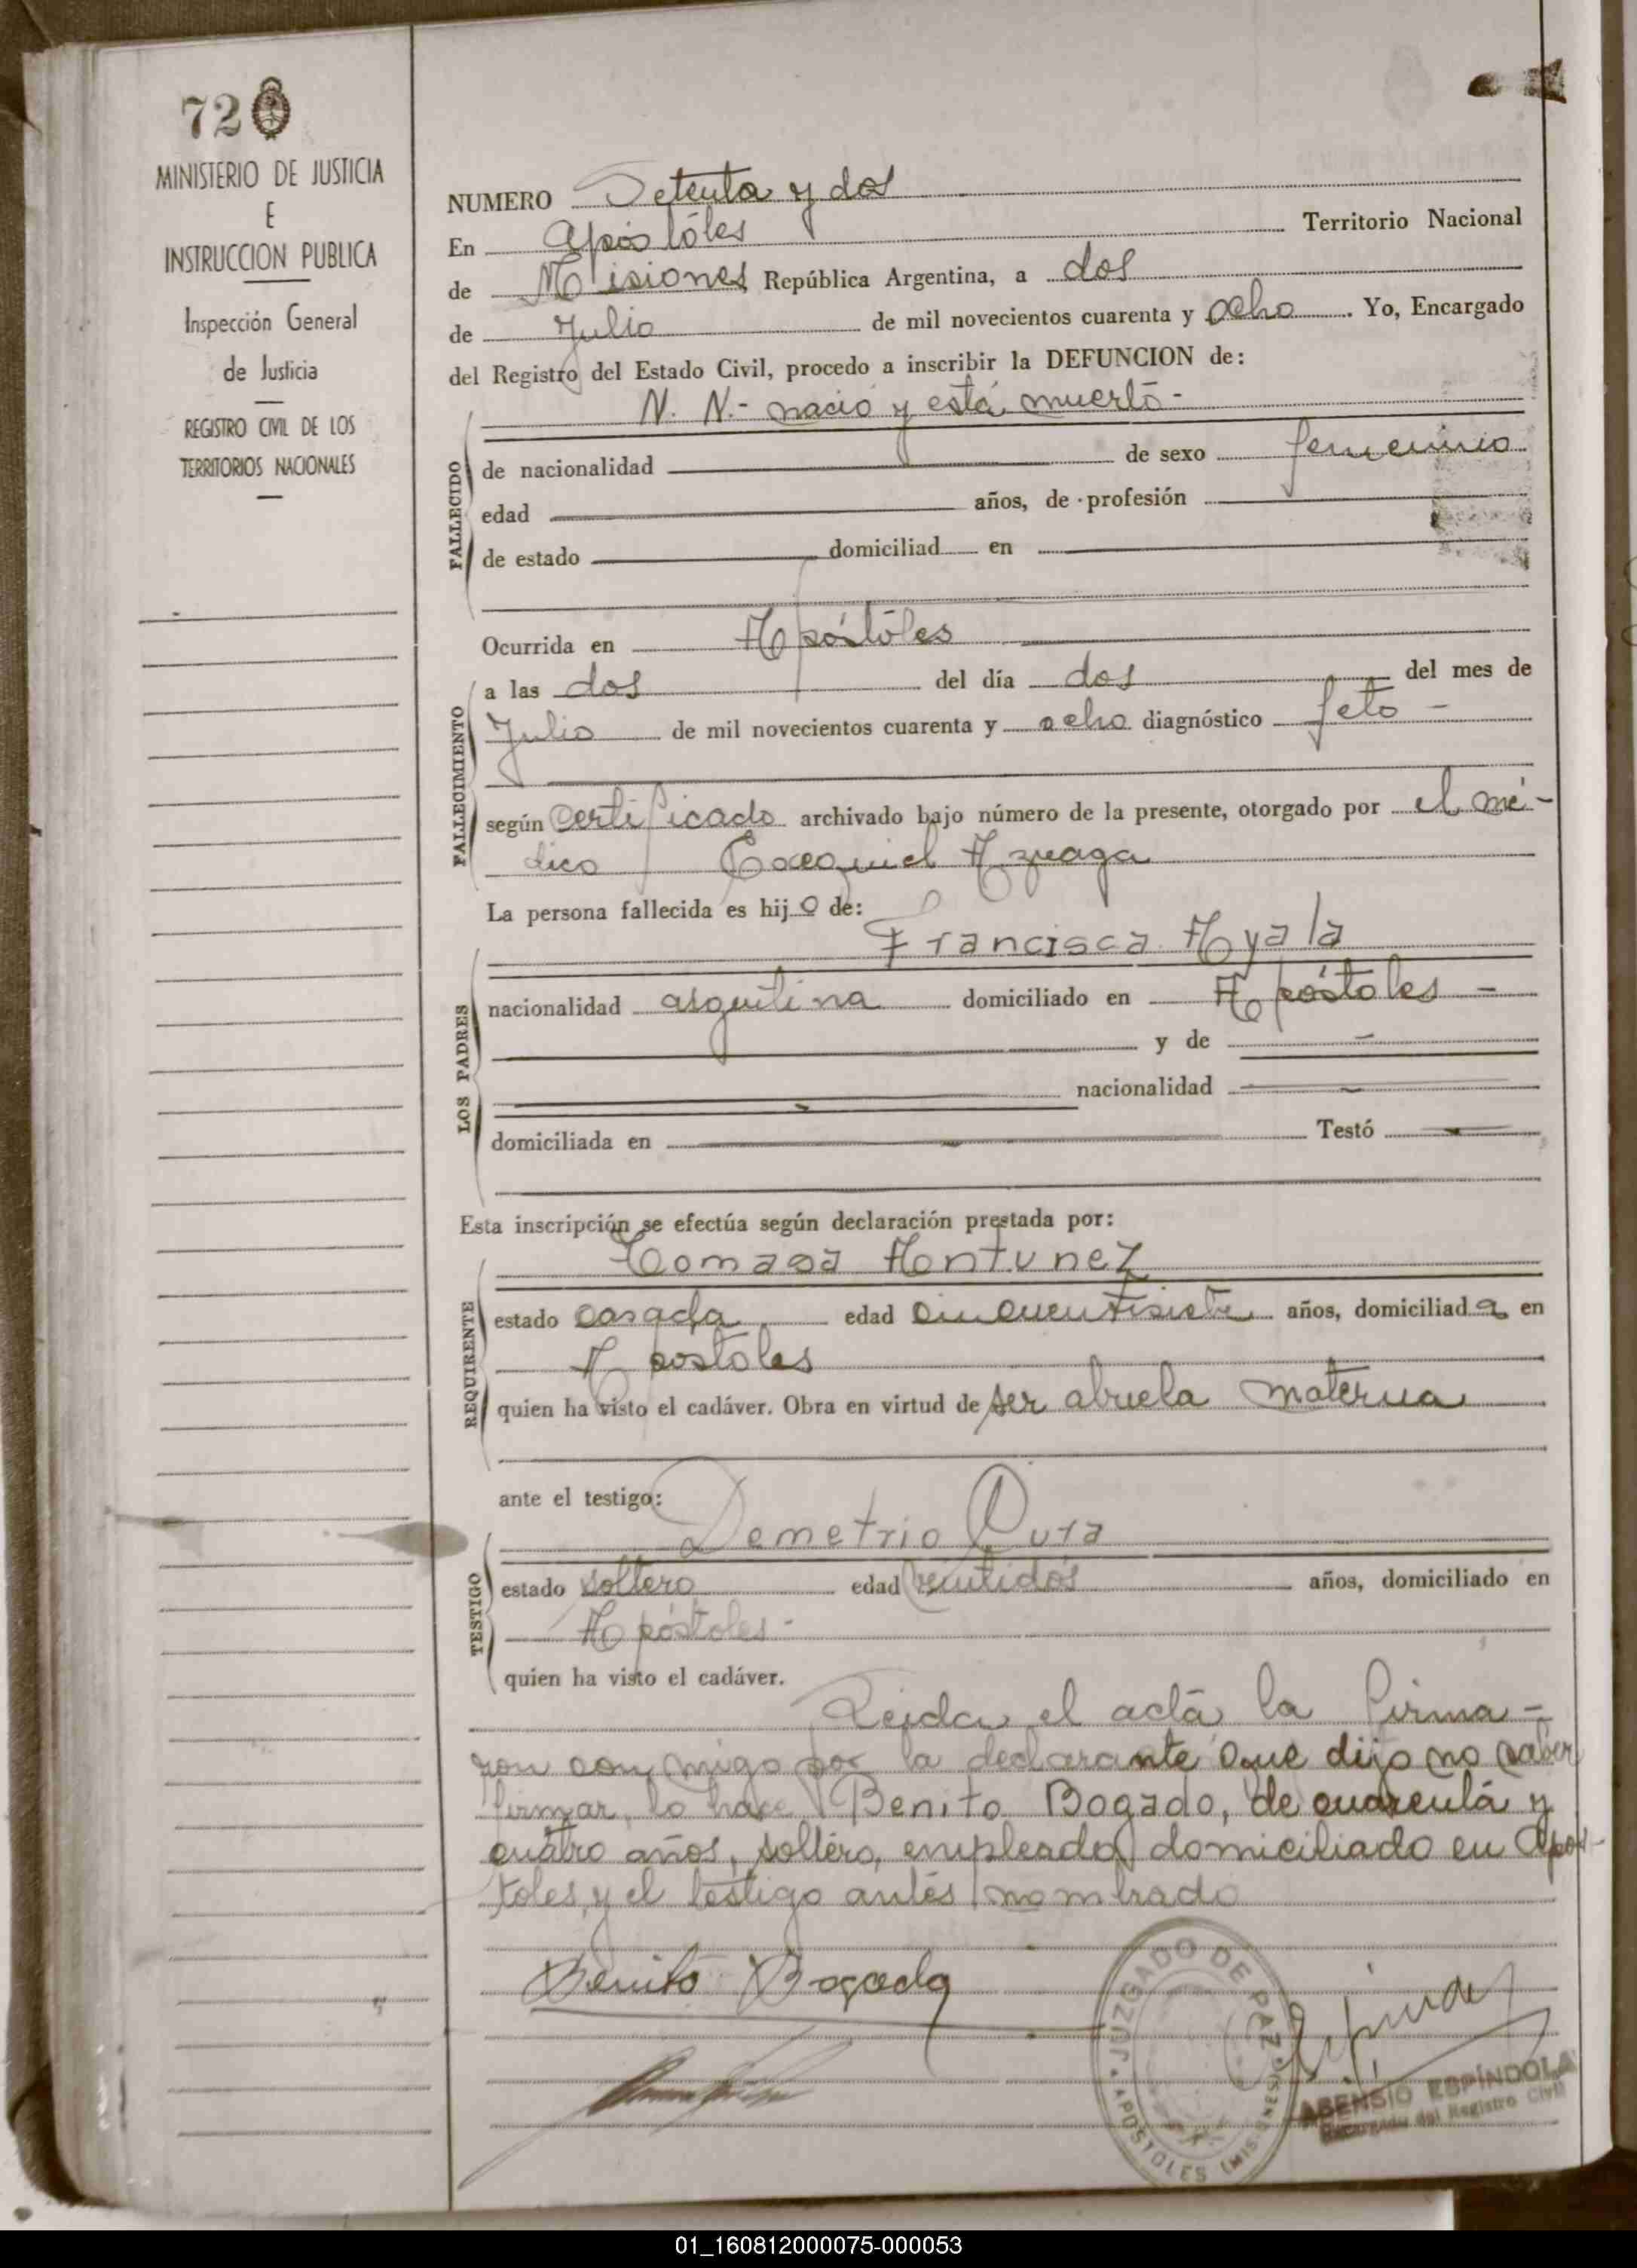 72
MINISTERIO DE JUSTICIA
E
INSTRUCCION PUBLICA
Inspección General
de Justicia
REGISTRO CIVIL DE LOS
TERRITORIOS NACIONALES
NUMERO Setenta y dos
En Apóstóles Territorio Nacional
de Misiones República Argentina, a dos
de Julio de mil novecientos cuarenta y ocho. Yo, Encargado
del Registro del Estado Civil, procedo a inscribir la DEFUNCION de:
N. N.- nació y está muertó-
FALLECIDO
de nacionalidad de sexo femenino
edad años, de profesión
de estado domiciliad en
Ocurrida en Apóstóles
FALLECIMIENTO
a las dos del día dos del mes de
Julio de mil novecientos cuarenta y ocho diagnóstico feto -
según certificado archivado bajo número de la presente, otorgado por el mé-
dico Exequiel Azuaga
La persona fallecida es hijo de:
Francisca Ayala
LOS PADRES
nacionalidad argentina domiciliado en Apóstoles -
y de
nacionalidad
domiciliada en Testó
Esta inscripción se efectúa según declaración prestada por:
Tomasa Antunez
REQUIRENTE
estado casada edad cincuentisiete años, domiciliada en
Apostoles
quien ha visto el cadáver. Obra en virtud de ser abuela materna
ante el testigo:
Demetrio
TESTIGO
estado soltero edad veintidós años, domiciliado en
Apóstoles-
quien ha visto el cadáver.
Leida el acta la firma-
ron conmigo por la declarante que dijo no saber
firmar, lo hace Benito Bogado, de cuarenta y
cuatro años, soltero, empleado, domiciliado en Após-
toles, y el testigo antes nombrado
Benito Bogado
JUZGADO DE PAZ
APOSTOLES (MISIONES)
ABENSIO ESPÍNDOLA
Encargado del Registro Civil
01_160812000075-000053